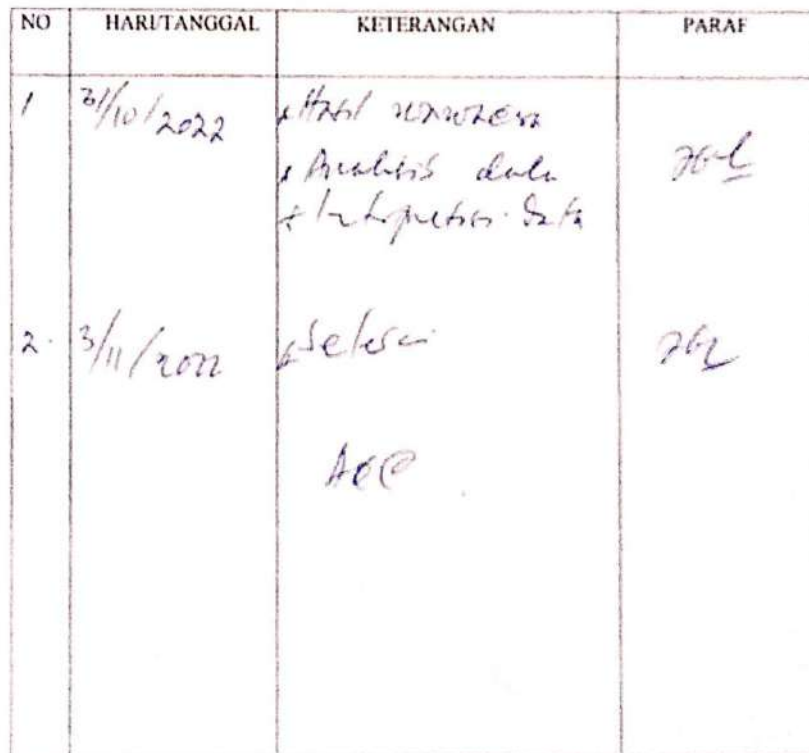 NO HARI/TANGGAL KETERANGAN PARAF
1 31/10/2022 Hasil wawancara
Analisis data
Interpretasi Data
2. 3/11/2022 Selesai
ACC